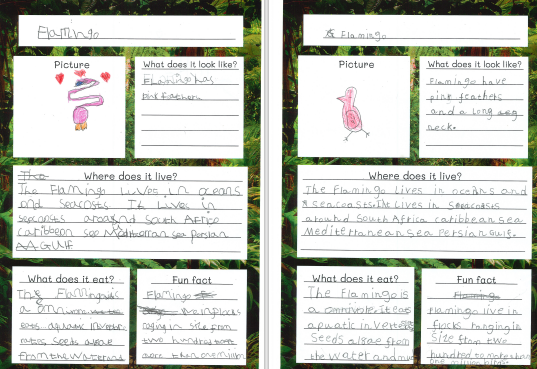 Flamingo
Picture
What does it look like?
Flamingo has
pink feathers
Where does it live?
The Flamingo lives in oceans
and seacosts It lives in
seaconsts around South Africa
Caribbean sea Mediterranean sea persian
GUlF
What does it eat?
The Flamingo is
a omnivore
eats aquatic inverteb
rates seeds algae
from the water and
Fun fact
Flamingo
live in flocks
raging in size from
two hundred to
more than one million
Flamingo
Picture
What does it look like?
Flamingo have
pink feathers
and a long
neck.
Where does it live?
The Flamingo Lives in oceans and
seacoasts It Lives in Seacoasts
around South Africa caribbean sea
Mediterranean sea Persian Gulf.
What does it eat?
The Flamingo is
a omnivore it eats
aquatic in vertebs
Seeds algae from
the water and mu
Fun fact
Flamingo
Flamingo live in
flocks ranging in
Size from two
hundred to more than
one million birds.